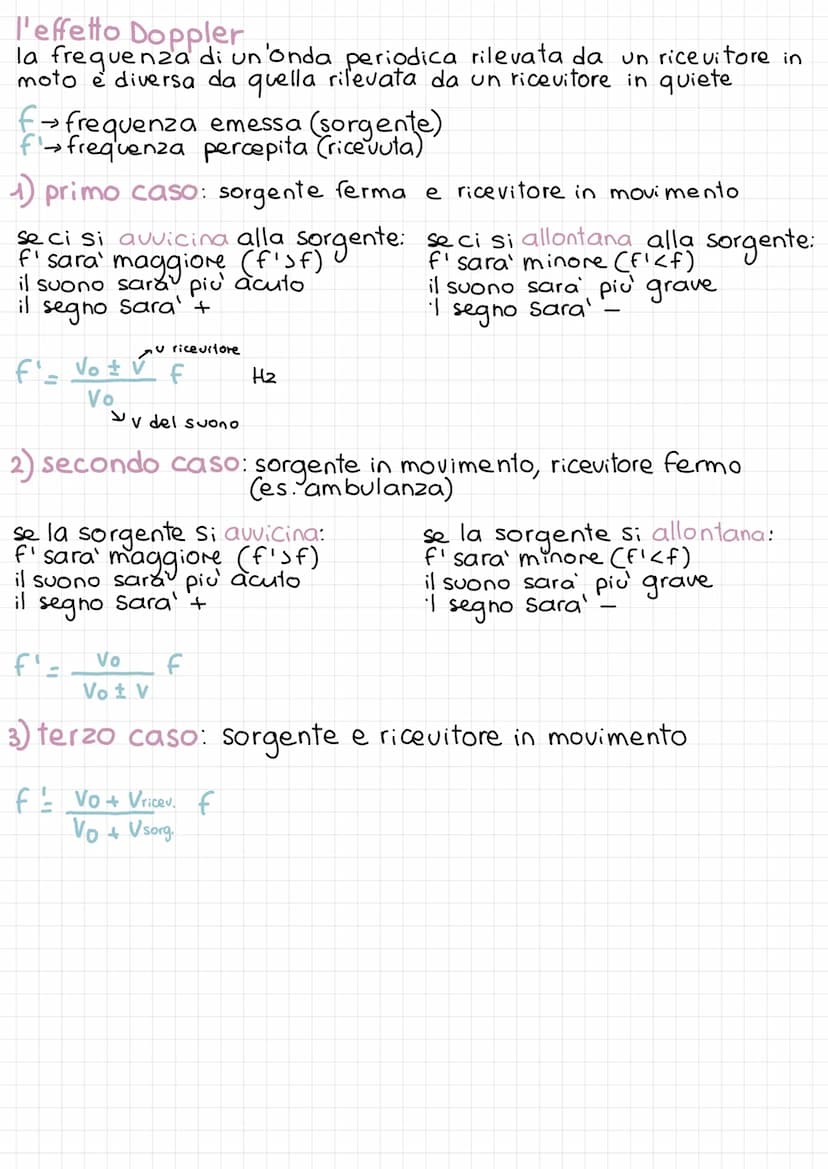 l'effetto Doppler
la frequenza di un'onda periodica rilevata da un ricevitore in
moto è diversa da quella rilevata da un ricevitore in quiete
f → frequenza emessa (sorgente)
f' → frequenza percepita (ricevuta)
1) primo caso: sorgente ferma e ricevitore in movimento
se ci si avvicina alla sorgente:
f' sara' maggiore (f'>f)
il suono sarà più acuto
il segno sara' +
se ci si allontana alla sorgente:
f' sara' minore (f'<f)
il suono sara' più grave
il segno sara' −
v ricevitore
f' = (Vo ± V) / Vo f Hz
v del suono
2) secondo caso: sorgente in movimento, ricevitore fermo
(es. ambulanza)
se la sorgente si avvicina:
f' sara' maggiore (f'>f)
il suono sarà più acuto
il segno sara' +
se la sorgente si allontana:
f' sara' minore (f'<f)
il suono sara' più grave
il segno sara' −
f' = Vo / (Vo ± V) f
3) terzo caso: sorgente e ricevitore in movimento
f' = (Vo + Vricev.) / (Vo + Vsorg.) f